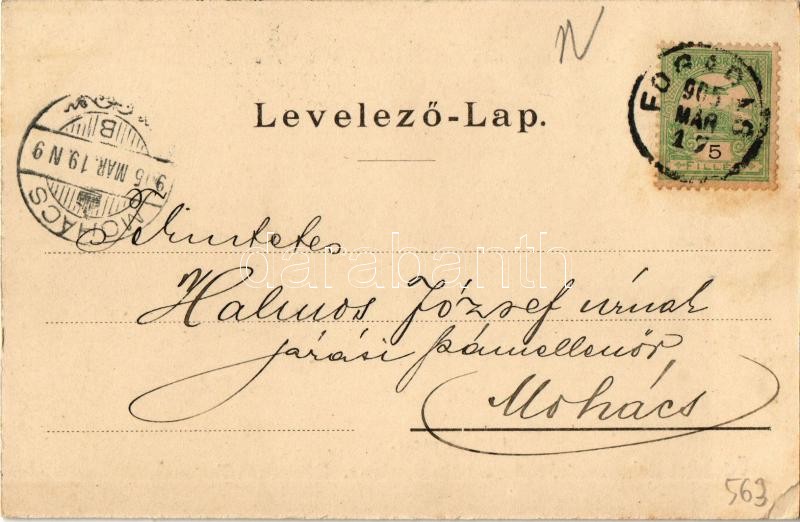 N
FOGARAS
905
MAR
5
FILLÉR
Levelező-Lap.
MOHÁCS
905 MAR. 19. N 9
B
Tekintetes
Halmos József úrnak
járási számellenőr
Mohács
darabanth
563